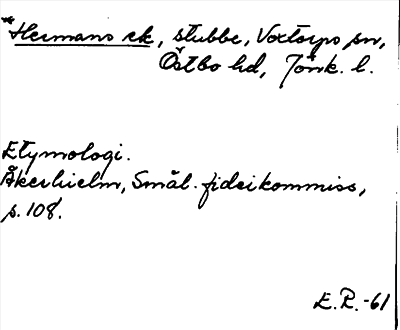 *Hermans ek, stubbe, Voxtorps sn,
Östbo hd, Jönk. l.
Etymologi.
Åkerhielm, Smål. fideikommiss,
s. 108.
E.R.-61